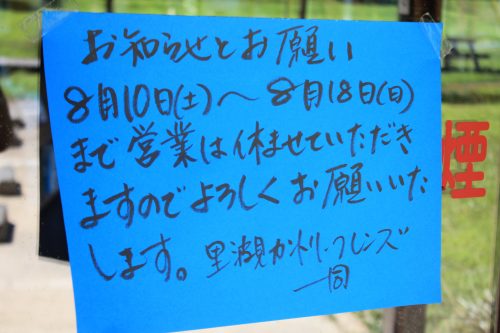 お知らせとお願い
8月10日(土)〜8月18日(日)
まで営業は休ませていただき
ますのでよろしくお願いいた
します。里湖カントリーフレンズ
一同
煙